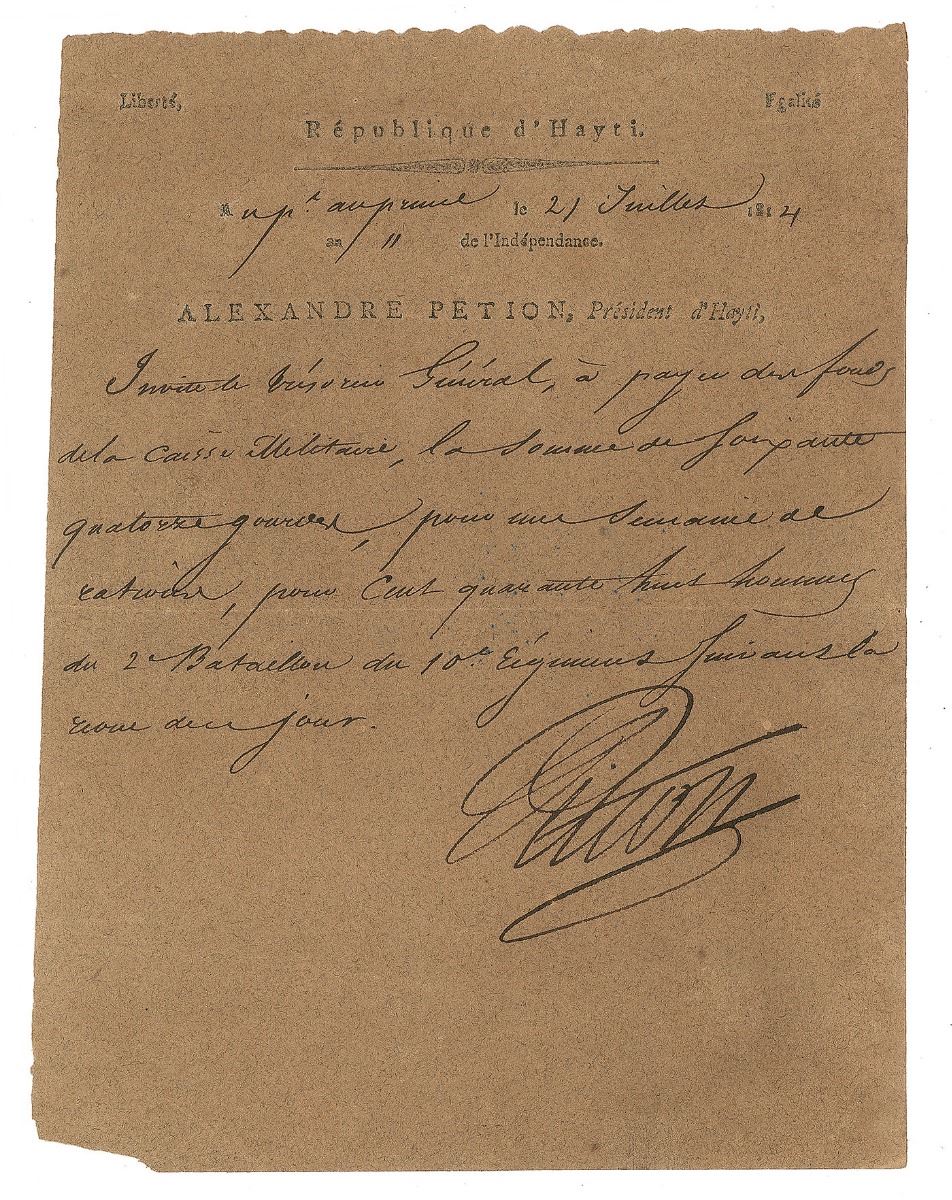 Liberté, Egalité
République d'Hayti.
Au pt. auprince le 21 Juillet 1814
an 11 de l'Indépendance.
ALEXANDRE PETION, Président d'Hayti,
Invite le trésorier Général, à payer des fonds
de la caisse Militaire, la somme de soixante
quatorze gourdes, pour une semaine de
rations, pour Cent quarante huit hommes
du 2e Bataillon du 10e régiment suivant la
revue de ce jour.
Pétion